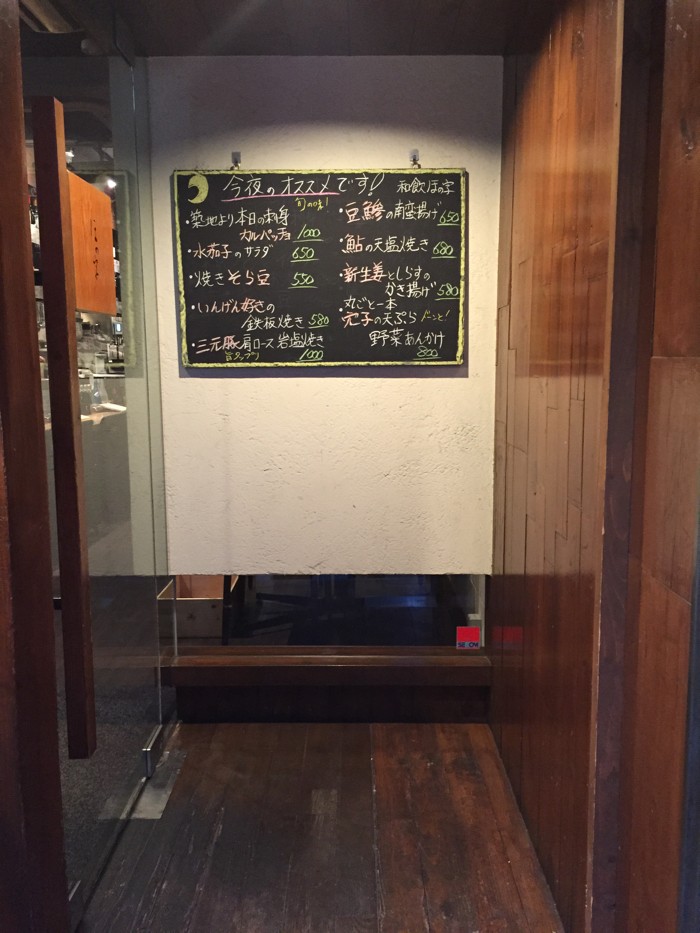 今夜のオススメです!
和飲 ほの字
旬の味!
・築地より本日の刺身
カルパッチョ 1000
・水茄子のサラダ 650
・焼きそら豆 550
・いんげん好きの
鉄板焼き 580
・三元豚肩ロース岩塩焼き
1000
・豆鯵の南蛮揚げ 650
・鮎の天塩焼き 680
・新生姜としらすの
かき揚げ 580
・丸ごと一本
穴子の天ぷら ドーンと!
野菜あんかけ
800
ほの字